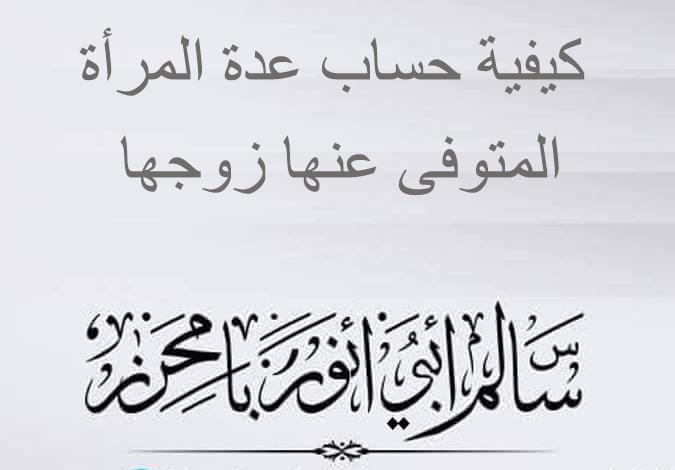 كيفية حساب عدة المرأة
المتوفى عنها زوجها
سالم أبي أنور بامحرز